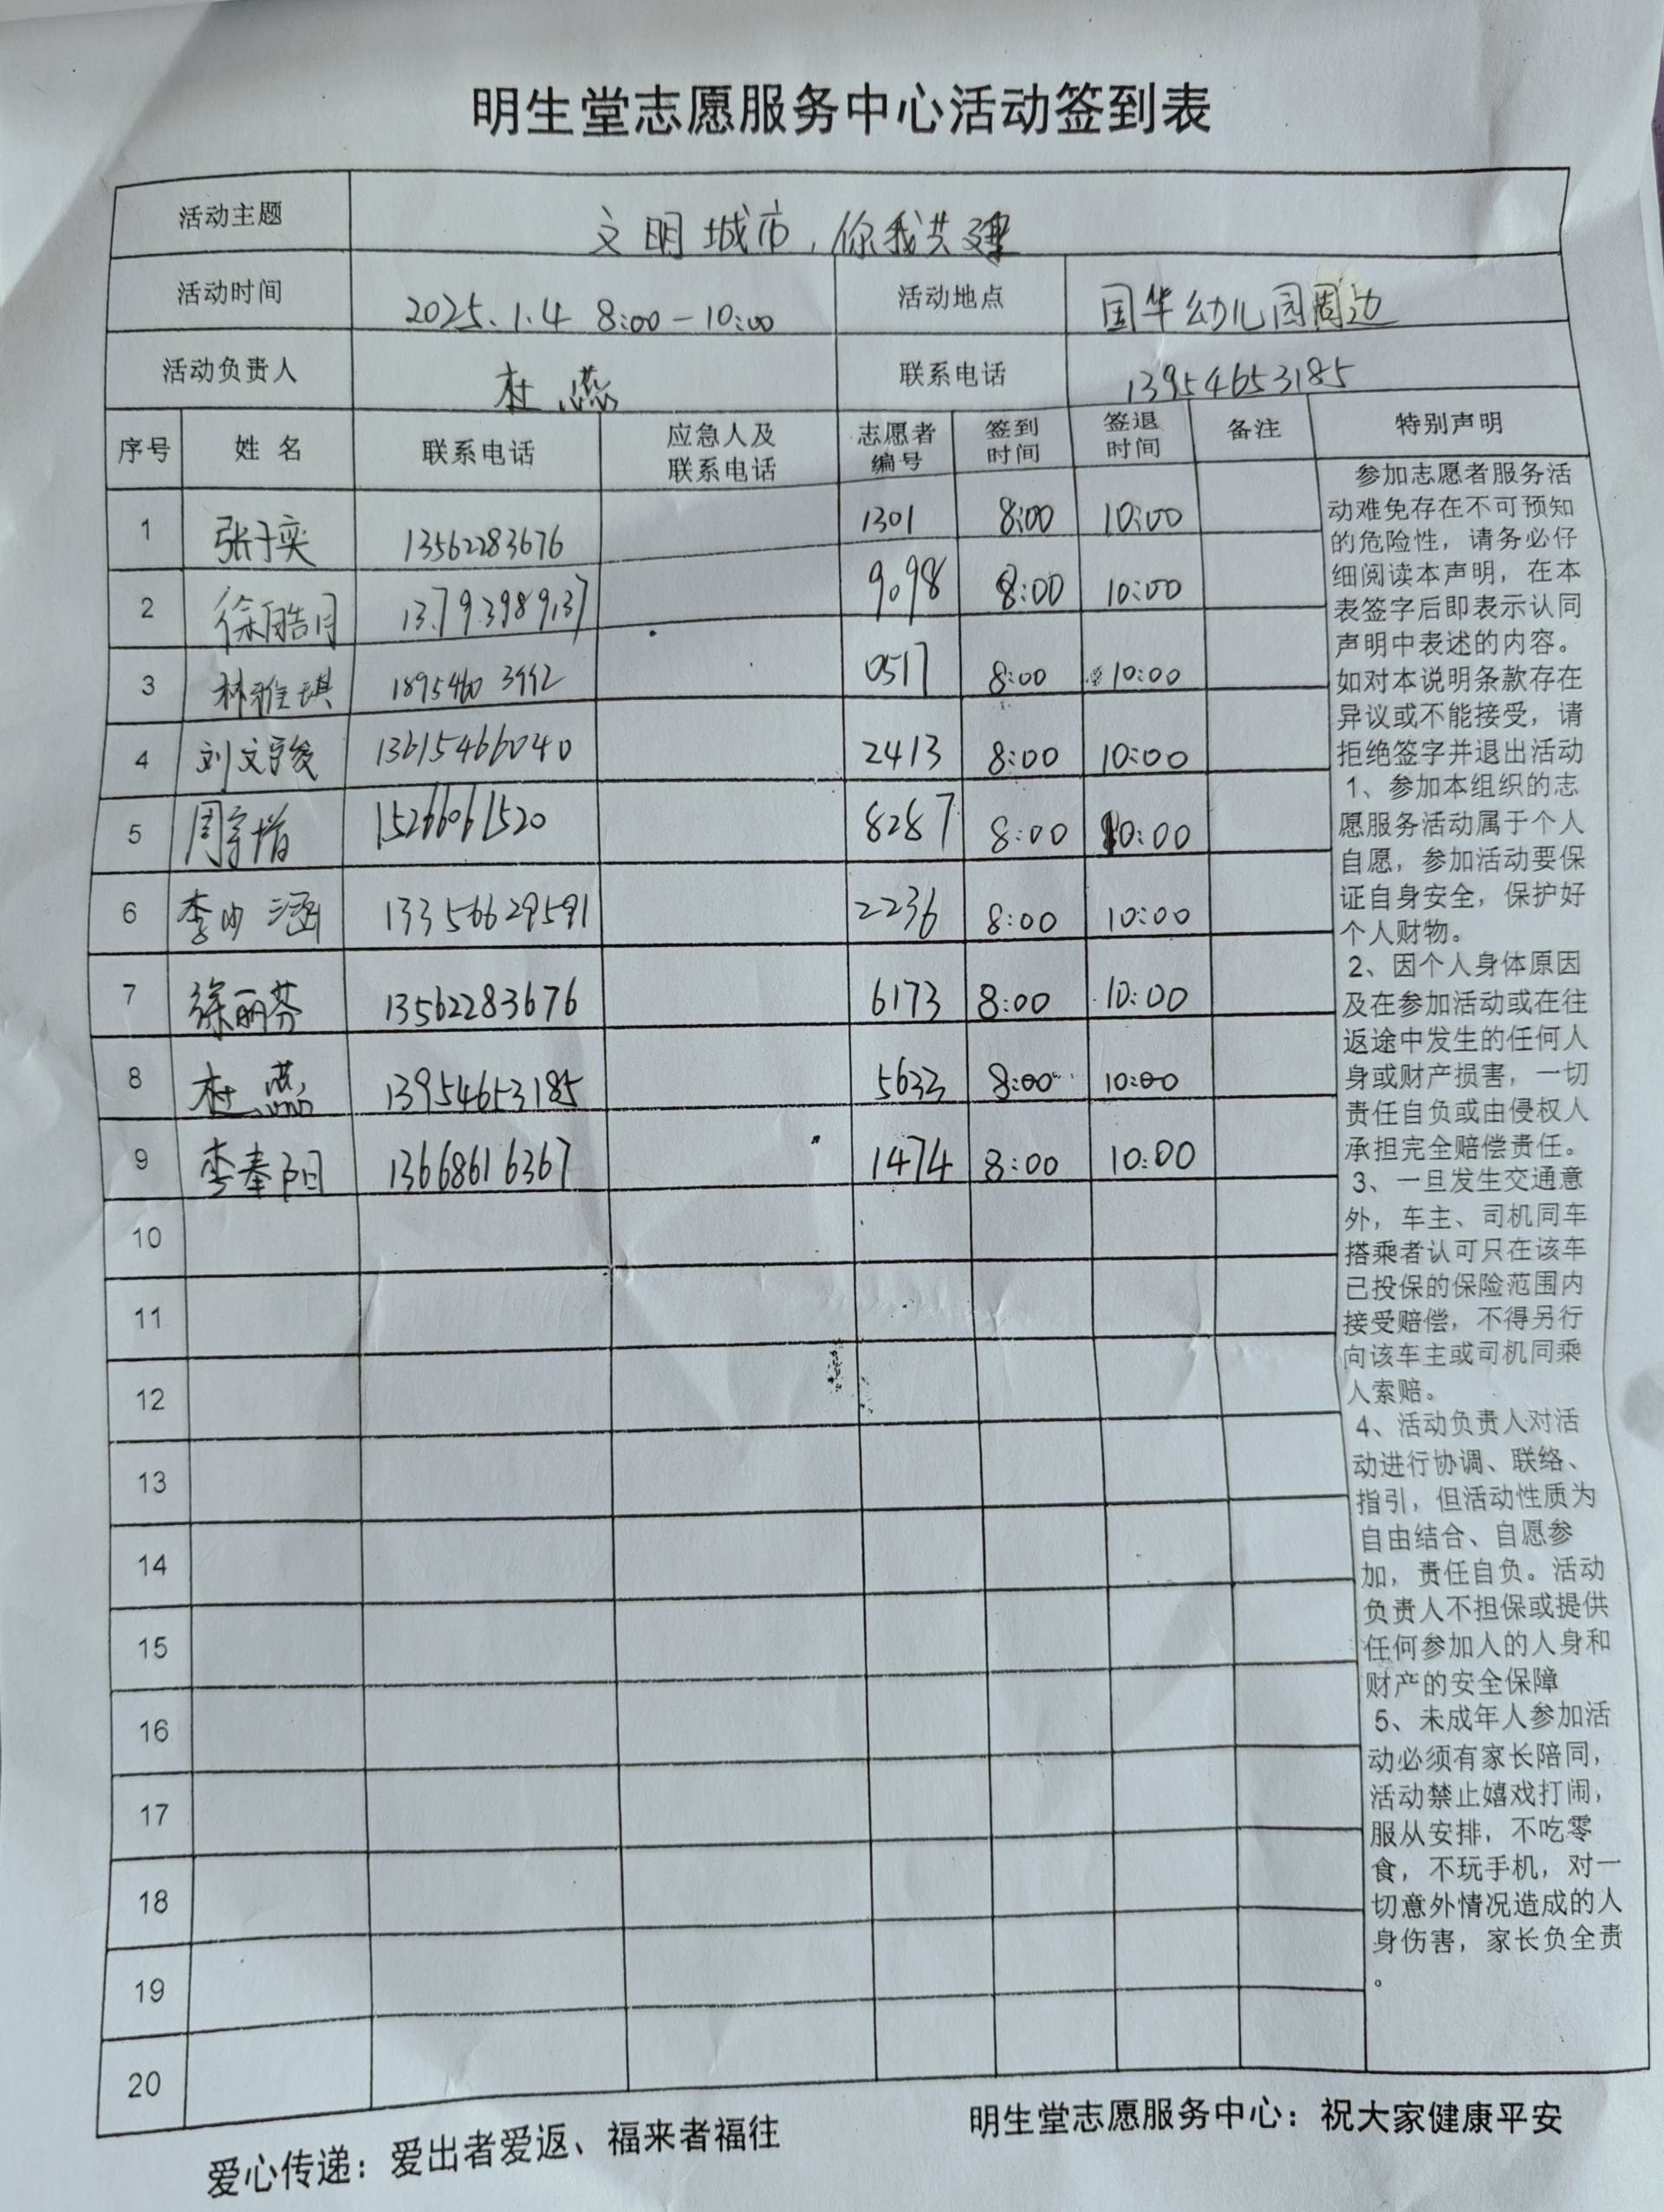 明生堂志愿服务中心活动签到表
活动主题 文明城市,你我共建
活动时间 2025.1.4 8:00-10:00 活动地点 国华幼儿园周边
活动负责人 杜蕊 联系电话 13954653185
序号 姓名 联系电话 应急人及联系电话 志愿者编号 签到时间 签退时间 备注 特别声明
1 张于奕 13562283676 1301 8:00 10:00
2 徐皓月 13793989137 9098 8:00 10:00
3 林雅琪 18954603992 0517 8:00 10:00
4 刘文骏 13615466040 2413 8:00 10:00
5 周宇增 15266061520 8287 8:00 10:00
6 李涵 13356629591 2236 8:00 10:00
7 徐丽芬 13562283676 6173 8:00 10:00
8 杜蕊 13954653185 5633 8:00 10:00
9 李奉阳 13668616367 1474 8:00 10:00
10
11
12
13
14
15
16
17
18
19
20
参加志愿者服务活
动难免存在不可预知
的危险性，请务必仔
细阅读本声明，在本
表签字后即表示认同
声明中表述的内容。
如对本说明条款存在
异议或不能接受，请
拒绝签字并退出活动
1、参加本组织的志
愿服务活动属于个人
自愿，参加活动要保
证自身安全，保护好
个人财物。
2、因个人身体原因
及在参加活动或在往
返途中发生的任何人
身或财产损害，一切
责任自负或由侵权人
承担完全赔偿责任。
3、一旦发生交通意
外，车主、司机同车
搭乘者认可只在该车
已投保的保险范围内
接受赔偿，不得另行
向该车主或司机同乘
人索赔。
4、活动负责人对活
动进行协调、联络、
指引，但活动性质为
自由结合、自愿参
加，责任自负。活动
负责人不担保或提供
任何参加人的人身和
财产的安全保障
5、未成年人参加活
动必须有家长陪同，
活动禁止嬉戏打闹，
服从安排，不吃零
食，不玩手机，对一
切意外情况造成的人
身伤害，家长负全责
。
爱心传递：爱出者爱返、福来者福往 明生堂志愿服务中心：祝大家健康平安